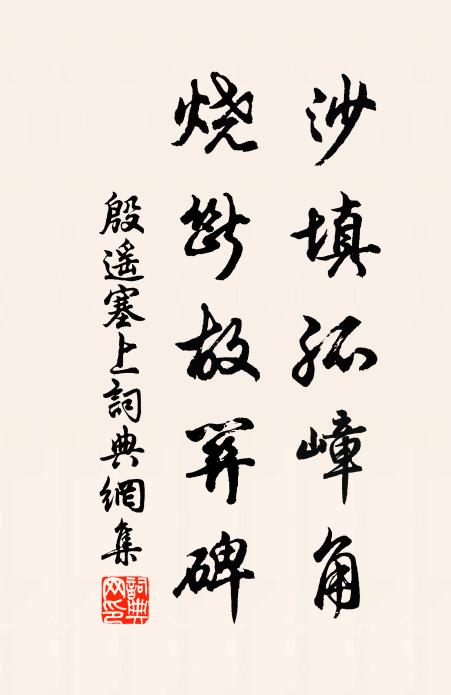 沙填孤嶂角
烧断故关碑
殷遥塞上詞典網集
詞典网印